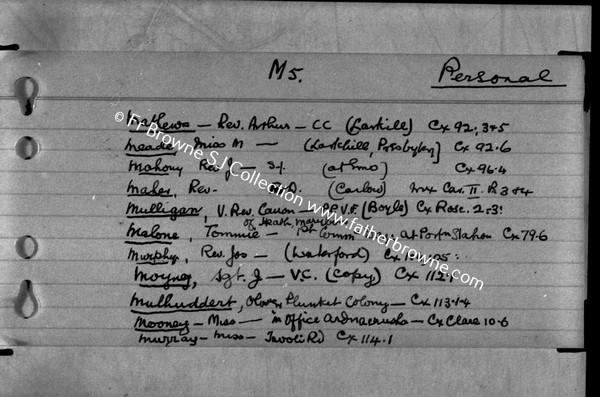 M5. Personal
Mathews — Rev. Arthur — CC (Larkill) Cx 92. 3+5
Meade Miss M — (Larkhill, Presbytery) Cx 92.6
Mahony Rev J — S.J. (at Emo) Cx 96.4
Maher, Rev. (Carlow) Car. II. R 3+4
Mulligan, V. Rev. Canon — P.P. V.F. (Boyle) Cx Rosc. 2.3
Malone, Tommie — 1st Comm at Station Cx 79.6
Murphy, Rev. Jos — (Waterford) Cx
Moyney, Sgt. J — V.C. (Copy) Cx 112.1
Mulhuddert, Oliver Plunket Colony — Cx 113.1-4
Mooney — Miss — in Office Ardnacrusha — Cx Clare 10.6
Murray — Miss — Tivoli Rd Cx 114.1
© Fr Browne S.J Collection www.fatherbrowne.com